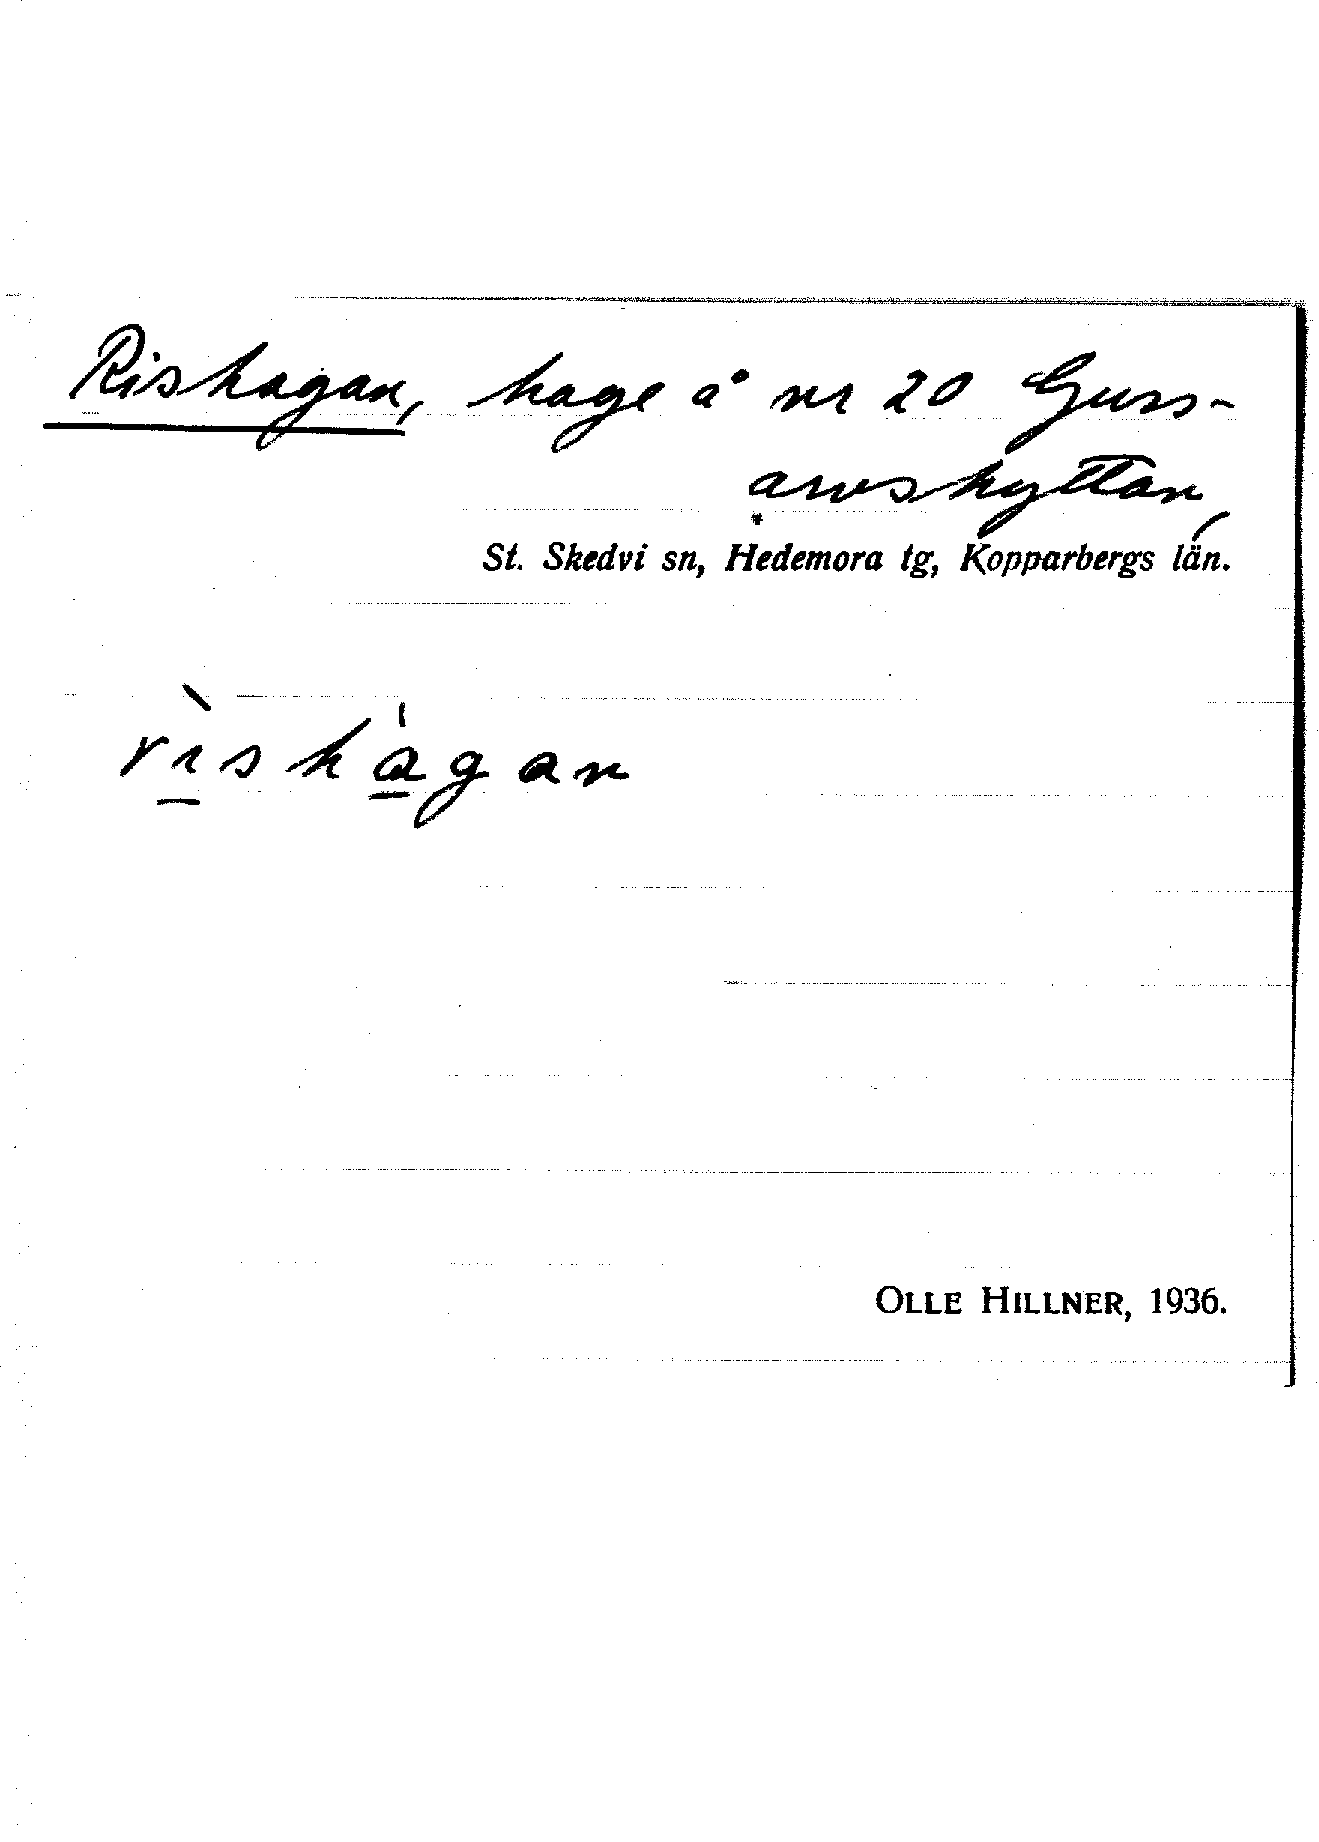 Rishagan, hage å nr 20 Guss-
arvshyttan,
St. Skedvi sn, Hedemora tg, Kopparbergs län.
rìshágan
OLLE HILLNER, 1936.